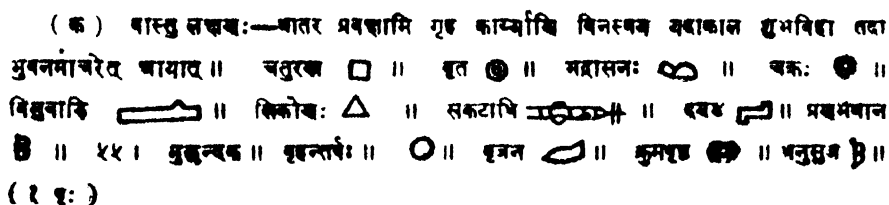 ( क ) वास्तु लक्षणः—चातर प्रवक्षामि गृह कार्य्याणि विनस्वय यदाकाल शुभविद्दा तदा
भुवनमाचरेत् आयात् ॥ चतुरस्र ॥ वृत ॥ भद्रासनः ॥ चक्रः ॥
विषुवाडि ॥ त्रिकोणः ॥ सकटाभि ॥ दण्ड ॥ प्रणमंथान
॥ ५५ । मुखुन्यक ॥ वृहन्तर्षः ॥ ॥ वृजन ॥ क्रुमपृष्ठ ॥ धनुसुज ॥
( १ पृः )